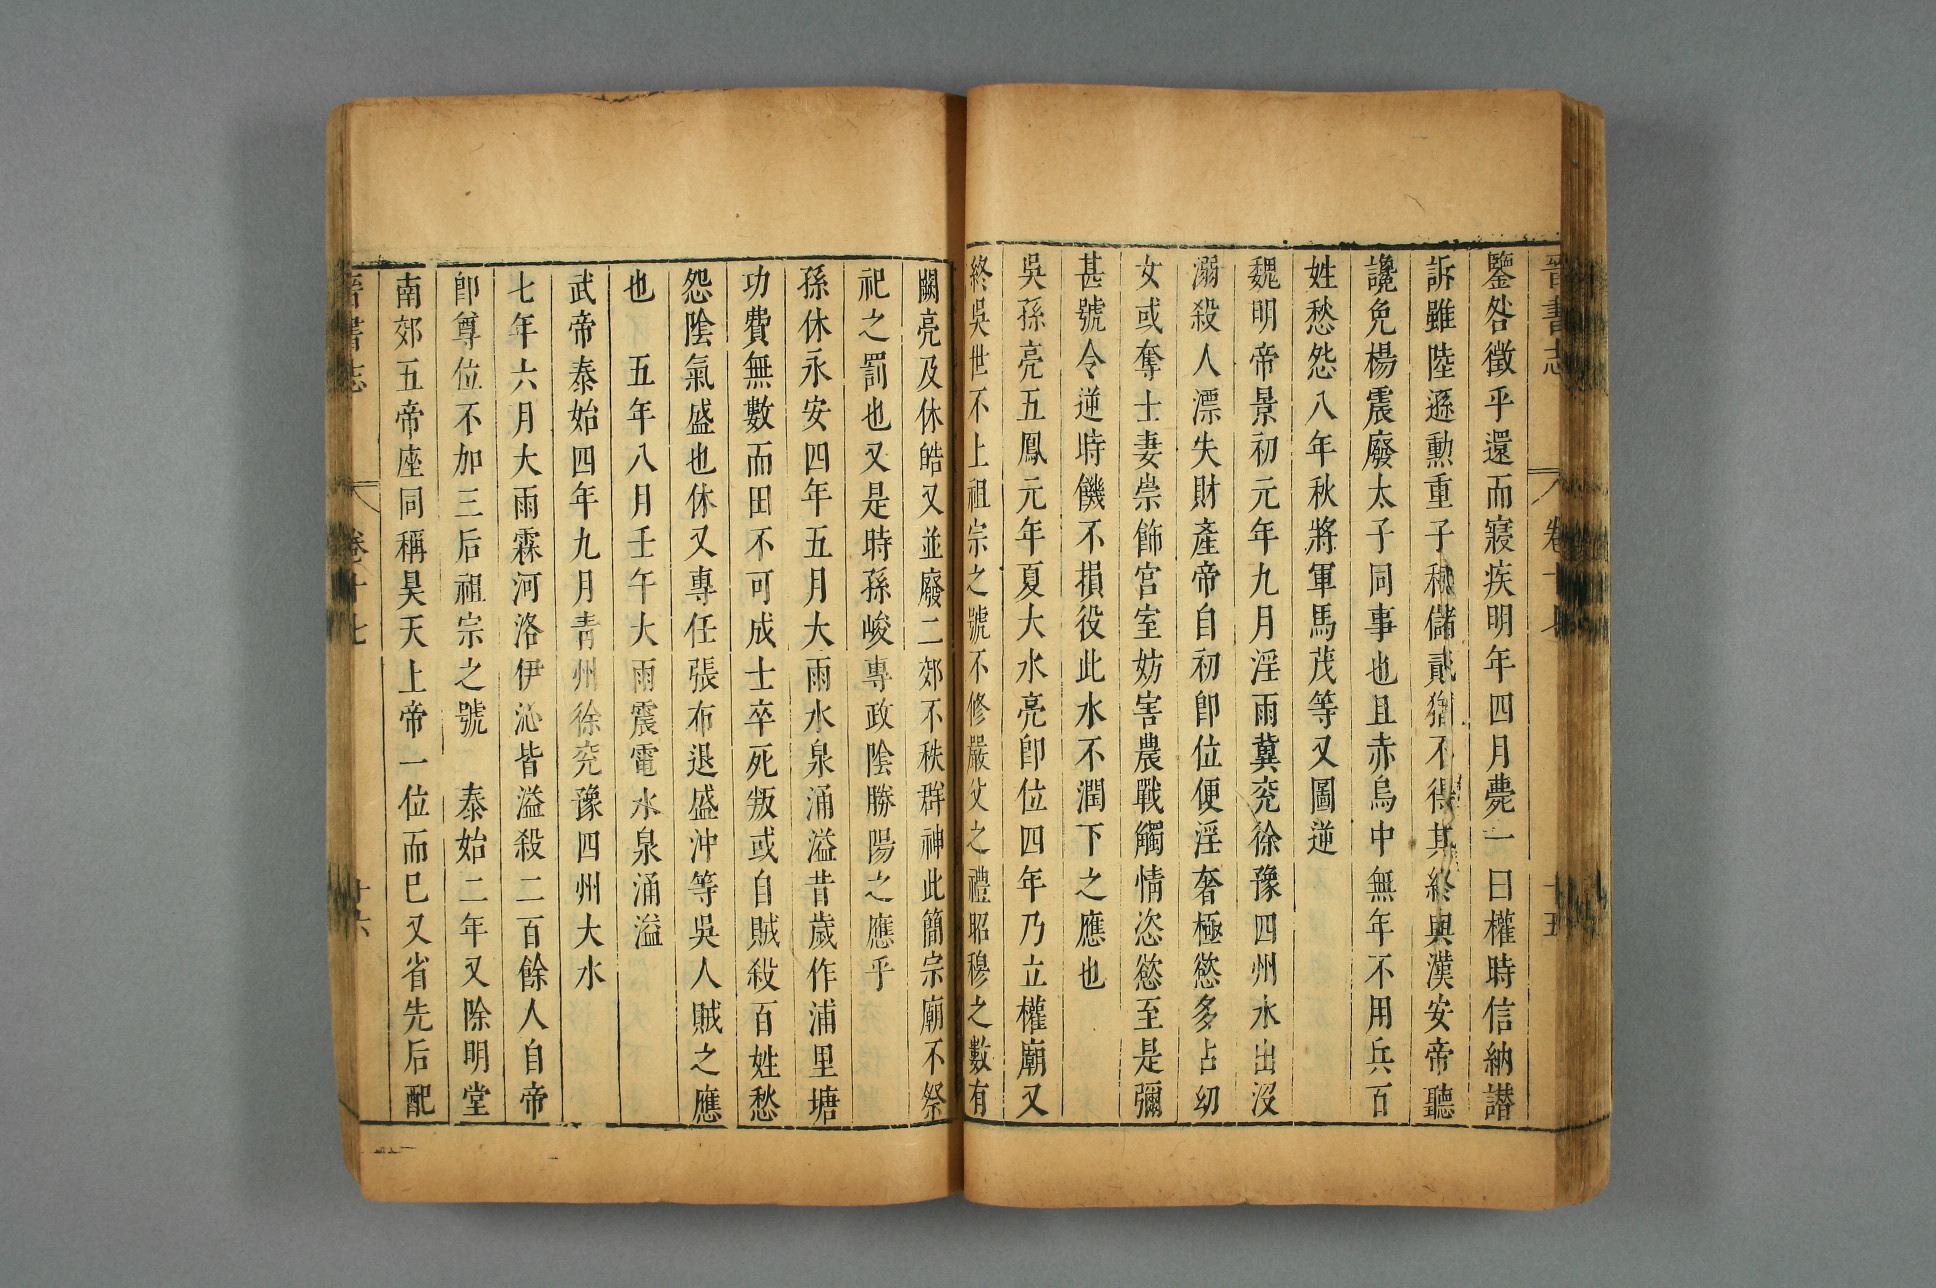 晉書志　卷十七　十五
鑒咎徵乎還而寢疾明年四月薨一曰權時信納譖
訴雖陸遜勳重子和儲貳猶不得其終與漢安帝聽
讒免楊震廢太子同事也且赤烏中無年不用兵百
姓愁怨八年秋將軍馬茂等又圖逆
魏明帝景初元年九月淫雨冀兖徐豫四州水出沒
溺殺人漂失財產帝自初卽位便淫奢極慾多占幼
女或奪士妻崇飾宮室妨害農戰觸情恣慾至是彌
甚號令逆時饑不損役此水不潤下之應也
吳孫亮五鳳元年夏大水亮卽位四年乃立權廟又
終吳世不上祖宗之號不修嚴父之禮昭穆之數有
闕亮及休皓又並廢二郊不秩群神此簡宗廟不祭
祀之罰也又是時孫峻專政陰勝陽之應乎
孫休永安四年五月大雨水泉涌溢昔歲作浦里塘
功費無數而田不可成士卒死叛或自賊殺百姓愁
怨陰氣盛也休又專任張布退盛沖等吳人賊之應
也　五年八月壬午大雨震電水泉涌溢
武帝泰始四年九月青州徐兖豫四州大水
七年六月大雨霖河洛伊沁皆溢殺二百餘人自帝
卽尊位不加三后祖宗之號　泰始二年又除明堂
南郊五帝座同稱昊天上帝一位而已又省先后配
晉書志　卷十七　十六